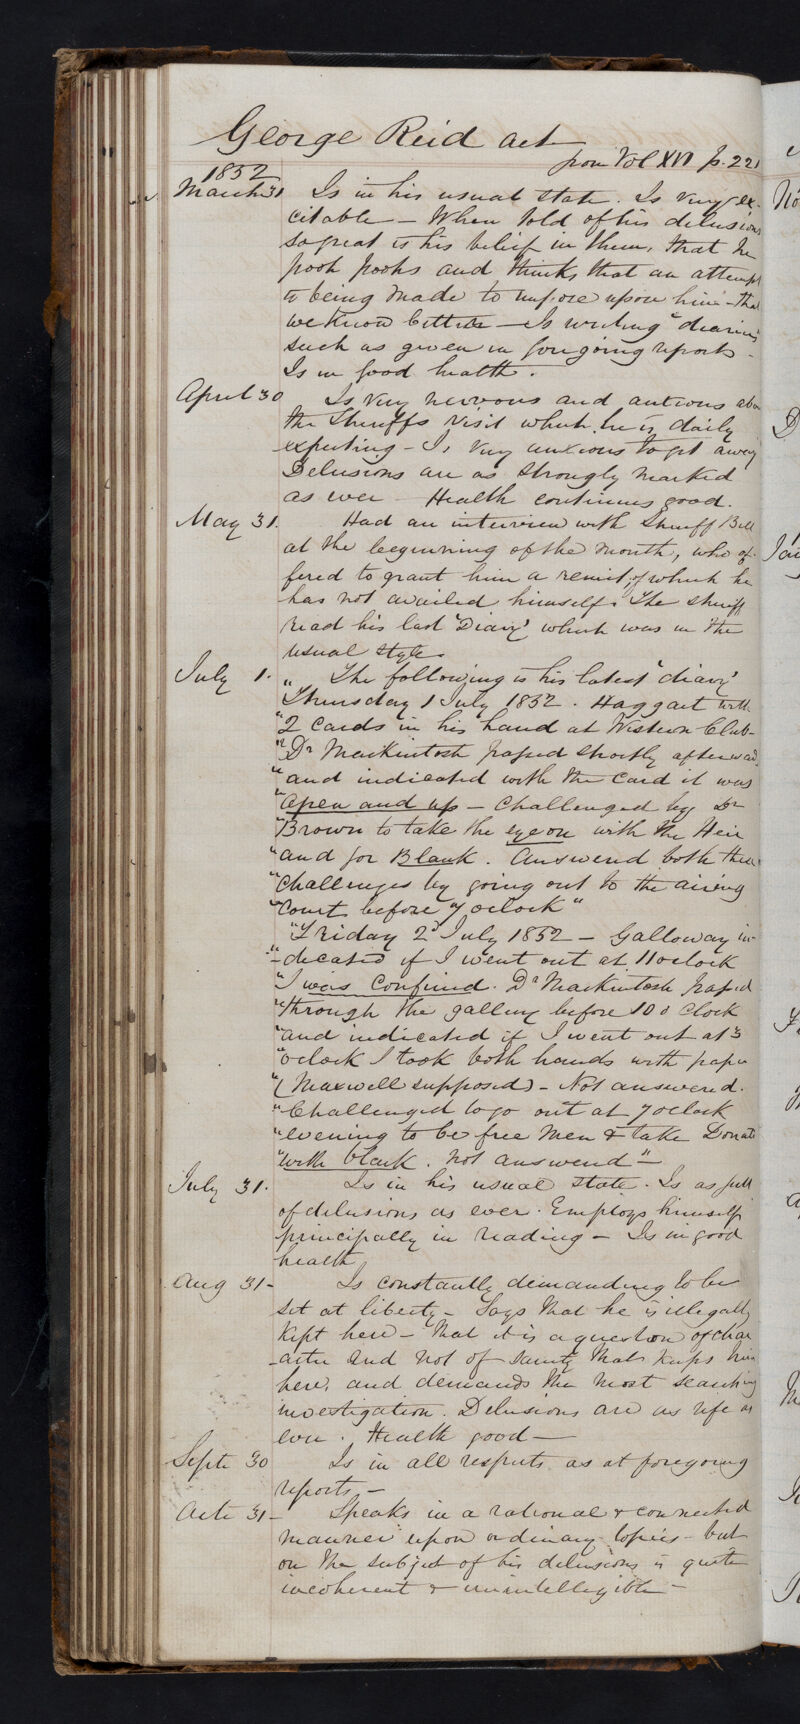 George Reid act
from Vol XVI p. 221
1852
March 31 Is in his usual state. Is very ex-
citable - When told of his delusions
so great is his belief in them, that he
pooh poohs and thinks that an attempt
is being made to impose upon him - that
we know better - Is writing "diaries"
such as given in foregoing reports -
Is in good health.
April 30 Is very nervous and anxious abo
the Sheriffs visit which he is daily
expecting - Is very anxious to get away
Delusions are as strongly marked
as ever - Health continues good.
May 31. Had an interview with Sheriff Bell
at the beginning of the month, who of-
fered to grant him a remit, of which he
has not availed himself. The sheriff
read his last 'Diary' which was in the
usual style.
July 1. The following is his latest 'diary'
"Thursday 1 July 1852. Haggart with
"2 cards in his hand at Western Club-
"Dr Mackintosh passed shortly afterward
"and indicated with the card it was
"open and up - Challenged by Dr
"Brown to take the eye on with the Heir
"and for Blank. Answered both these
"challenges by going out to the airing
"court before 7 oclock"
"Friday 2d July 1852 - Galloway in-
"-dicated if I went out at 11 oclock
"I was confined. Dr Mackintosh passed
"through the gallery before 10 o clock
"and indicated if I went out at 3
"oclock I took both hands with papa
"(Maxwell supposed) - Not answered.
"Challenged to go out at 7 oclock
"evening to be free men & take Donati
"with blank. not answered" -
July 31. Is in his usual state. Is as full
of delusions as ever. Employs himself
principally in reading - Is in good
health
Aug 31 - Is constantly demanding to be
set at liberty - Says that he is illegally
kept here - that it is a question of char
-acter and not of sanity that keeps him
here, and demands the most searching
investigation. Delusions are as rife as
ever. Health good -
Septr 30 Is in all respects as at foregoing
reports -
Octr 31 - Speaks in a rational & connected
manner upon ordinary topics - but
on the subject of his delusions is quite
incoherent & unintelligible -